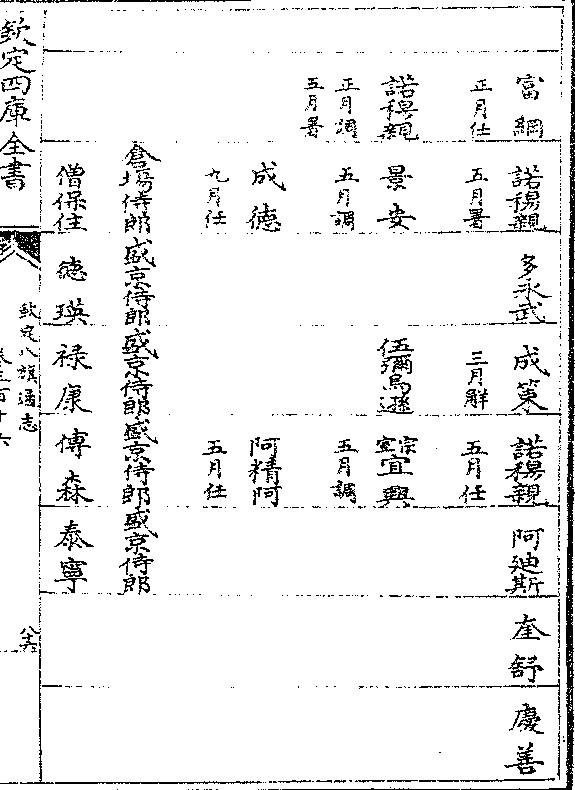 富綱 諾穆親 多永武 成策 諾穆親 阿迪斯 奎舒 慶善
正月任 五月署 三月解 五月任
諾穆親 景安 伍彌烏遜 宗室宜興
正月調 五月調 五月調
五月署 成德 阿精阿
九月任 五月任
倉場侍郎 盛京侍郎 盛京侍郎 盛京侍郎 盛京侍郎
僧保住 德瑛 禄康 傅森 泰寧
欽定四庫全書
欽定八旗通志